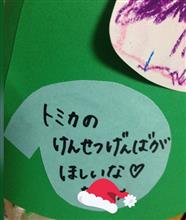 トミカの
けんせつげんばが
ほしいな♡